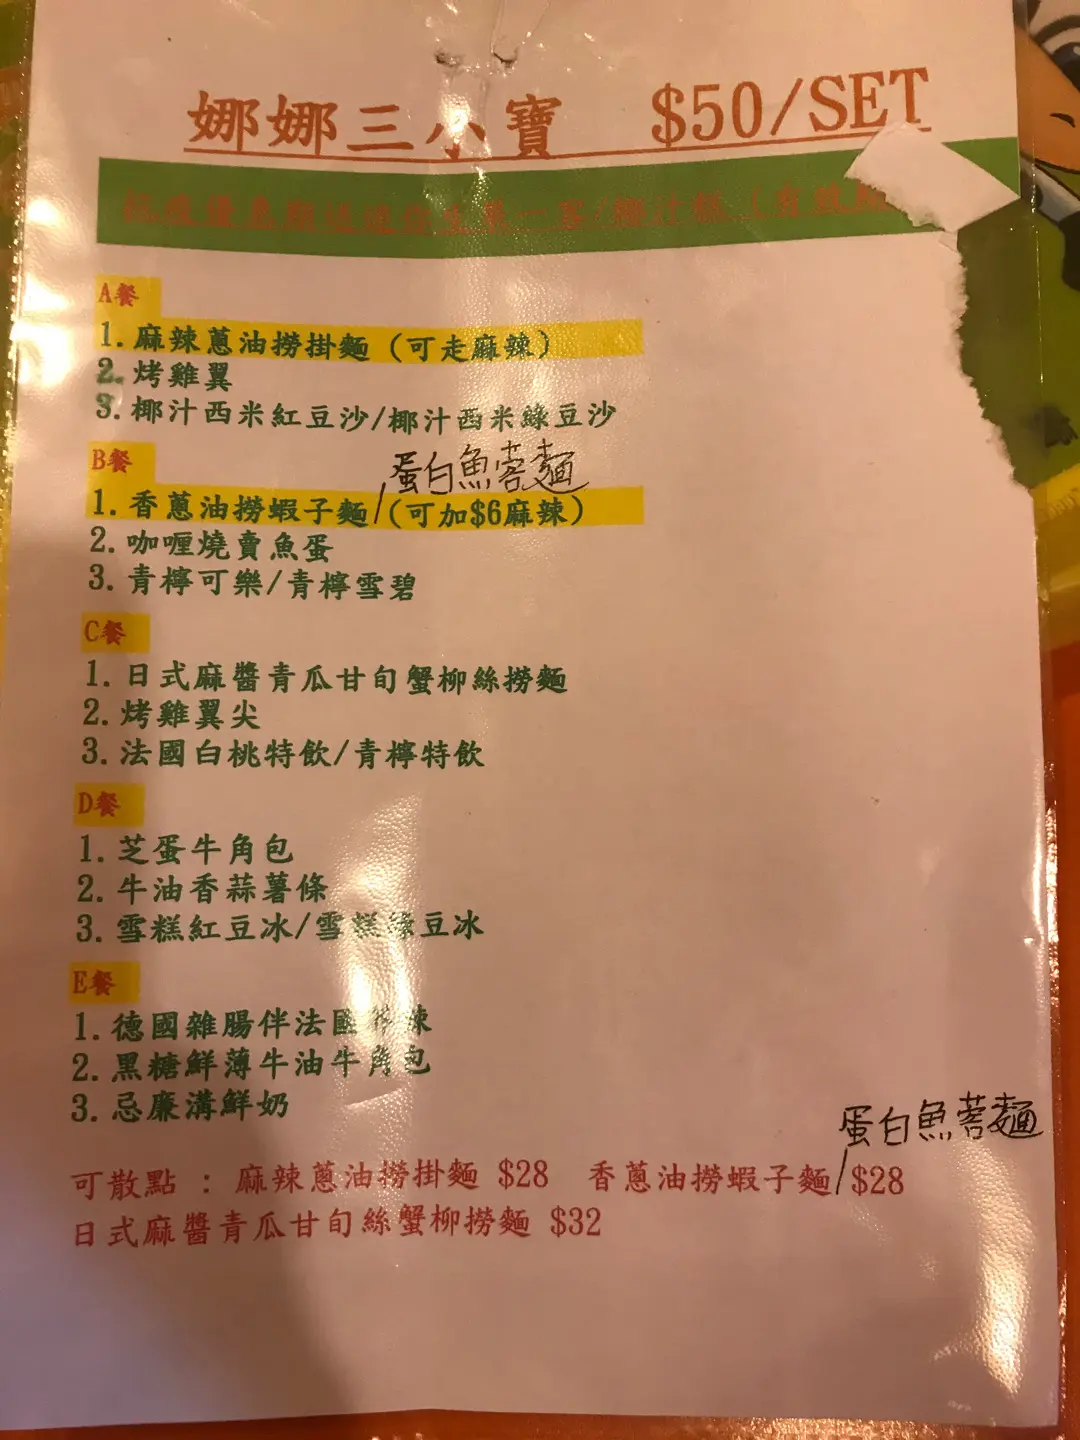 娜娜三小寶 $50/SET
抗疫優惠期送迷你生菓一客/椰汁糕(有效期
A餐
1. 麻辣蔥油撈掛麵 (可走麻辣)
2. 烤雞翼
3. 椰汁西米紅豆沙/椰汁西米綠豆沙
B餐
蛋白魚蓉麵
1. 香蔥油撈蝦子麵/(可加$6麻辣)
2. 咖喱燒賣魚蛋
3. 青檸可樂/青檸雪碧
C餐
1. 日式麻醬青瓜甘旬蟹柳絲撈麵
2. 烤雞翼尖
3. 法國白桃特飲/青檸特飲
D餐
1. 芝蛋牛角包
2. 牛油香蒜薯條
3. 雪糕紅豆冰/雪糕綠豆冰
E餐
1. 德國雜腸伴法國 辣
2. 黑糖鮮薄牛油牛角包
3. 忌廉溝鮮奶
蛋白魚蓉麵
可散點 : 麻辣蔥油撈掛麵 $28 香蔥油撈蝦子麵/$28
日式麻醬青瓜甘旬絲蟹柳撈麵 $32